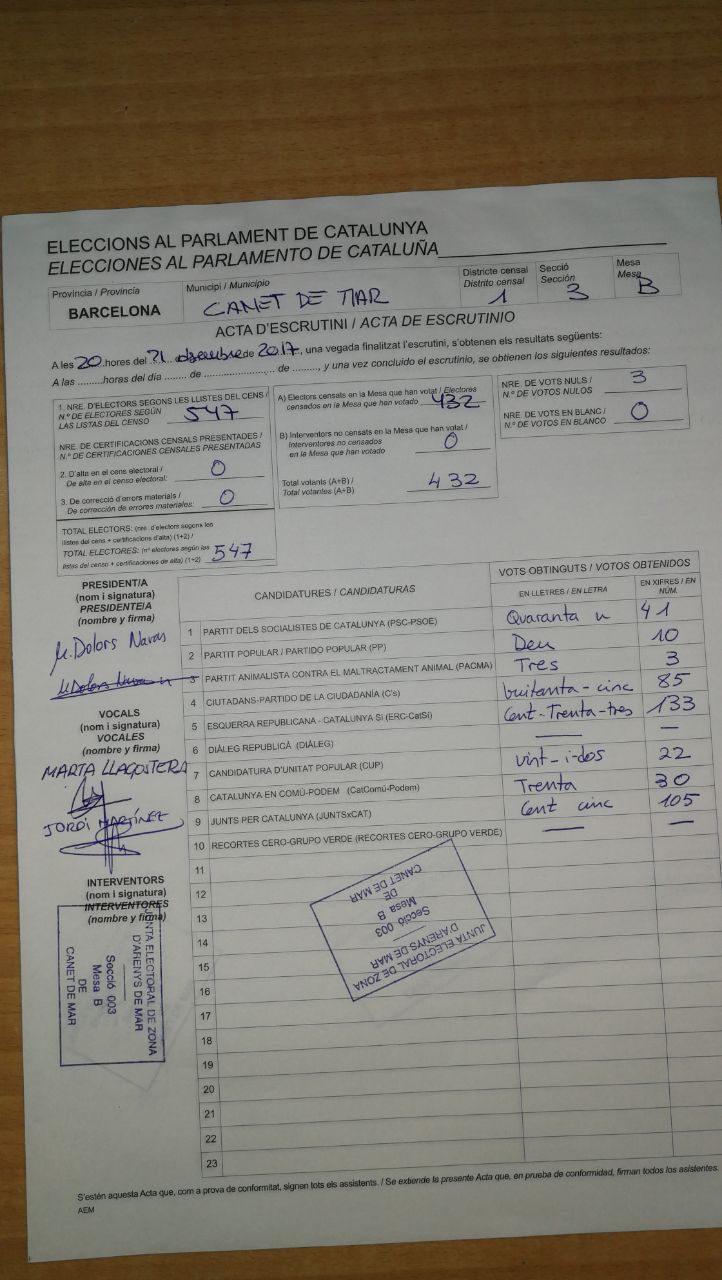 ELECCIONS AL PARLAMENT DE CATALUNYA
ELECCIONES AL PARLAMENTO DE CATALUÑA
Província / Provincia
BARCELONA
Municipi / Municipio
CANET DE MAR
Districte censal
Distrito censal
1
Secció
Sección
3
Mesa
Mesa
B
ACTA D'ESCRUTINI / ACTA DE ESCRUTINIO
A les 20 hores del 21 desembre de 2017, una vegada finalitzat l'escrutini, s'obtenen els resultats següents:
A las .........horas del día ........ de ........................ de ........., y una vez concluido el escrutinio, se obtienen los siguientes resultados:
1. NRE. D'ELECTORS SEGONS LES LLISTES DEL CENS /
N.º DE ELECTORES SEGÚN
LAS LISTAS DEL CENSO
547
NRE. DE CERTIFICACIONS CENSALS PRESENTADES /
N.º DE CERTIFICACIONES CENSALES PRESENTADAS
2. D'alta en el cens electoral /
De alta en el censo electoral:
0
3. De correcció d'errors materials /
De corrección de errores materiales:
0
TOTAL ELECTORS: (nre. d'electors segons les
llistes del cens + certificacions d'alta) (1+2) /
TOTAL ELECTORES: (nº electores según las
listas del censo + certificaciones de alta) (1+2)
547
A) Electors censats en la Mesa que han votat / Electores
censados en la Mesa que han votado
432
B) Interventors no censats en la Mesa que han votat /
Interventores no censados
en la Mesa que han votado
0
Total votants (A+B) /
Total votantes (A+B)
432
NRE. DE VOTS NULS /
N.º DE VOTOS NULOS
3
NRE. DE VOTS EN BLANC /
N.º DE VOTOS EN BLANCO
0
PRESIDENT/A
(nom i signatura)
PRESIDENTE/A
(nombre y firma)
M. Dolors Navas
VOCALS
(nom i signatura)
VOCALES
(nombre y firma)
MARTA LLAGOSTERA
JORDI MARTÍNEZ
INTERVENTORS
(nom i signatura)
INTERVENTORES
(nombre y firma)
JUNTA ELECTORAL DE ZONA
D'ARENYS DE MAR
Secció 003
Mesa B
DE
CANET DE MAR
CANDIDATURES / CANDIDATURAS
VOTS OBTINGUTS / VOTOS OBTENIDOS
EN LLETRES / EN LETRA
EN XIFRES / EN NÚM.
1 PARTIT DELS SOCIALISTES DE CATALUNYA (PSC-PSOE) Quaranta u 41
2 PARTIT POPULAR / PARTIDO POPULAR (PP) Deu 10
3 PARTIT ANIMALISTA CONTRA EL MALTRACTAMENT ANIMAL (PACMA) Tres 3
4 CIUTADANS-PARTIDO DE LA CIUDADANÍA (C's) buitanta-cinc 85
5 ESQUERRA REPUBLICANA - CATALUNYA SÍ (ERC-CatSí) Cent-Trenta-tres 133
6 DIÀLEG REPUBLICÀ (DIÀLEG) — —
7 CANDIDATURA D'UNITAT POPULAR (CUP) vint-i-dos 22
8 CATALUNYA EN COMÚ-PODEM (CatComú-Podem) Trenta 30
9 JUNTS PER CATALUNYA (JUNTSxCAT) Cent cinc 105
10 RECORTES CERO-GRUPO VERDE (RECORTES CERO-GRUPO VERDE) — —
11
12
13
14
15
16
17
18
19
20
21
22
23
JUNTA ELECTORAL DE ZONA
D'ARENYS DE MAR
Secció 003
Mesa B
DE
CANET DE MAR
S'estén aquesta Acta que, com a prova de conformitat, signen tots els assistents. / Se extiende la presente Acta que, en prueba de conformidad, firman todos los asistentes.
AEM